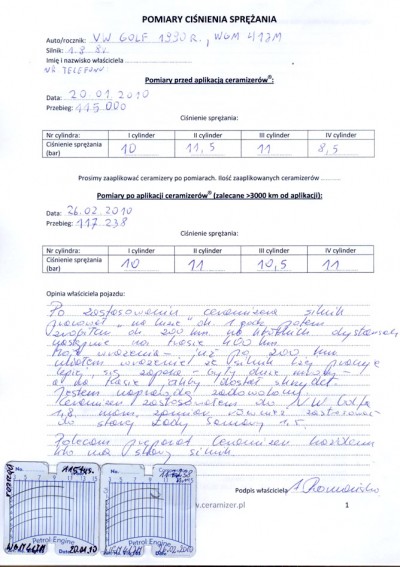 POMIARY CIŚNIENIA SPRĘŻANIA
Auto/rocznik: VW GOLF 1990 R., WGM 417M
Silnik: 1.8
Imię i nazwisko właściciela
NR TELEFONU:
Pomiary przed aplikacją ceramizerów®:
Data: 20.01.2010
Przebieg: 115 000
Ciśnienie sprężania:
Nr cylindra: I cylinder II cylinder III cylinder IV cylinder
Ciśnienie sprężania (bar) 10 11,5 11 8,5
Prosimy zaaplikować ceramizery po pomiarach. Ilość zaaplikowanych ceramizerów
Pomiary po aplikacji ceramizerów® (zalecane >3000 km od aplikacji):
Data: 26.02.2010
Przebieg: 117.238
Ciśnienie sprężania:
Nr cylindra: I cylinder II cylinder III cylinder IV cylinder
Ciśnienie sprężania (bar) 10 11 10,5 11
Opinia właściciela pojazdu:
Po zastosowaniu ceramizera silnik
pracował "na luzie" ok. 1 godz. potem
ok. 200 km na krótkich dystansach
następnie na trasie 400 km.
Moje wrażenia - już po 200 km
miałem wrażenie że silnik lżej pracuje
lepiej się zapala - były duże mrozy -
a na trasie jakby dostał skrzydeł.
Jestem naprawdę zadowolony.
Ceramizer zastosowałem do VW Golfa
1,8 mam zamiar również zastosować
do starej Łady Samary 1.5.
Polecam preparat Ceramizer każdemu
kto ma stary silnik.
Podpis właściciela
www.ceramizer.pl
1
115 tys.
Petrol Engine
20.01.10
No.
Petrol Engine
26.02.2010